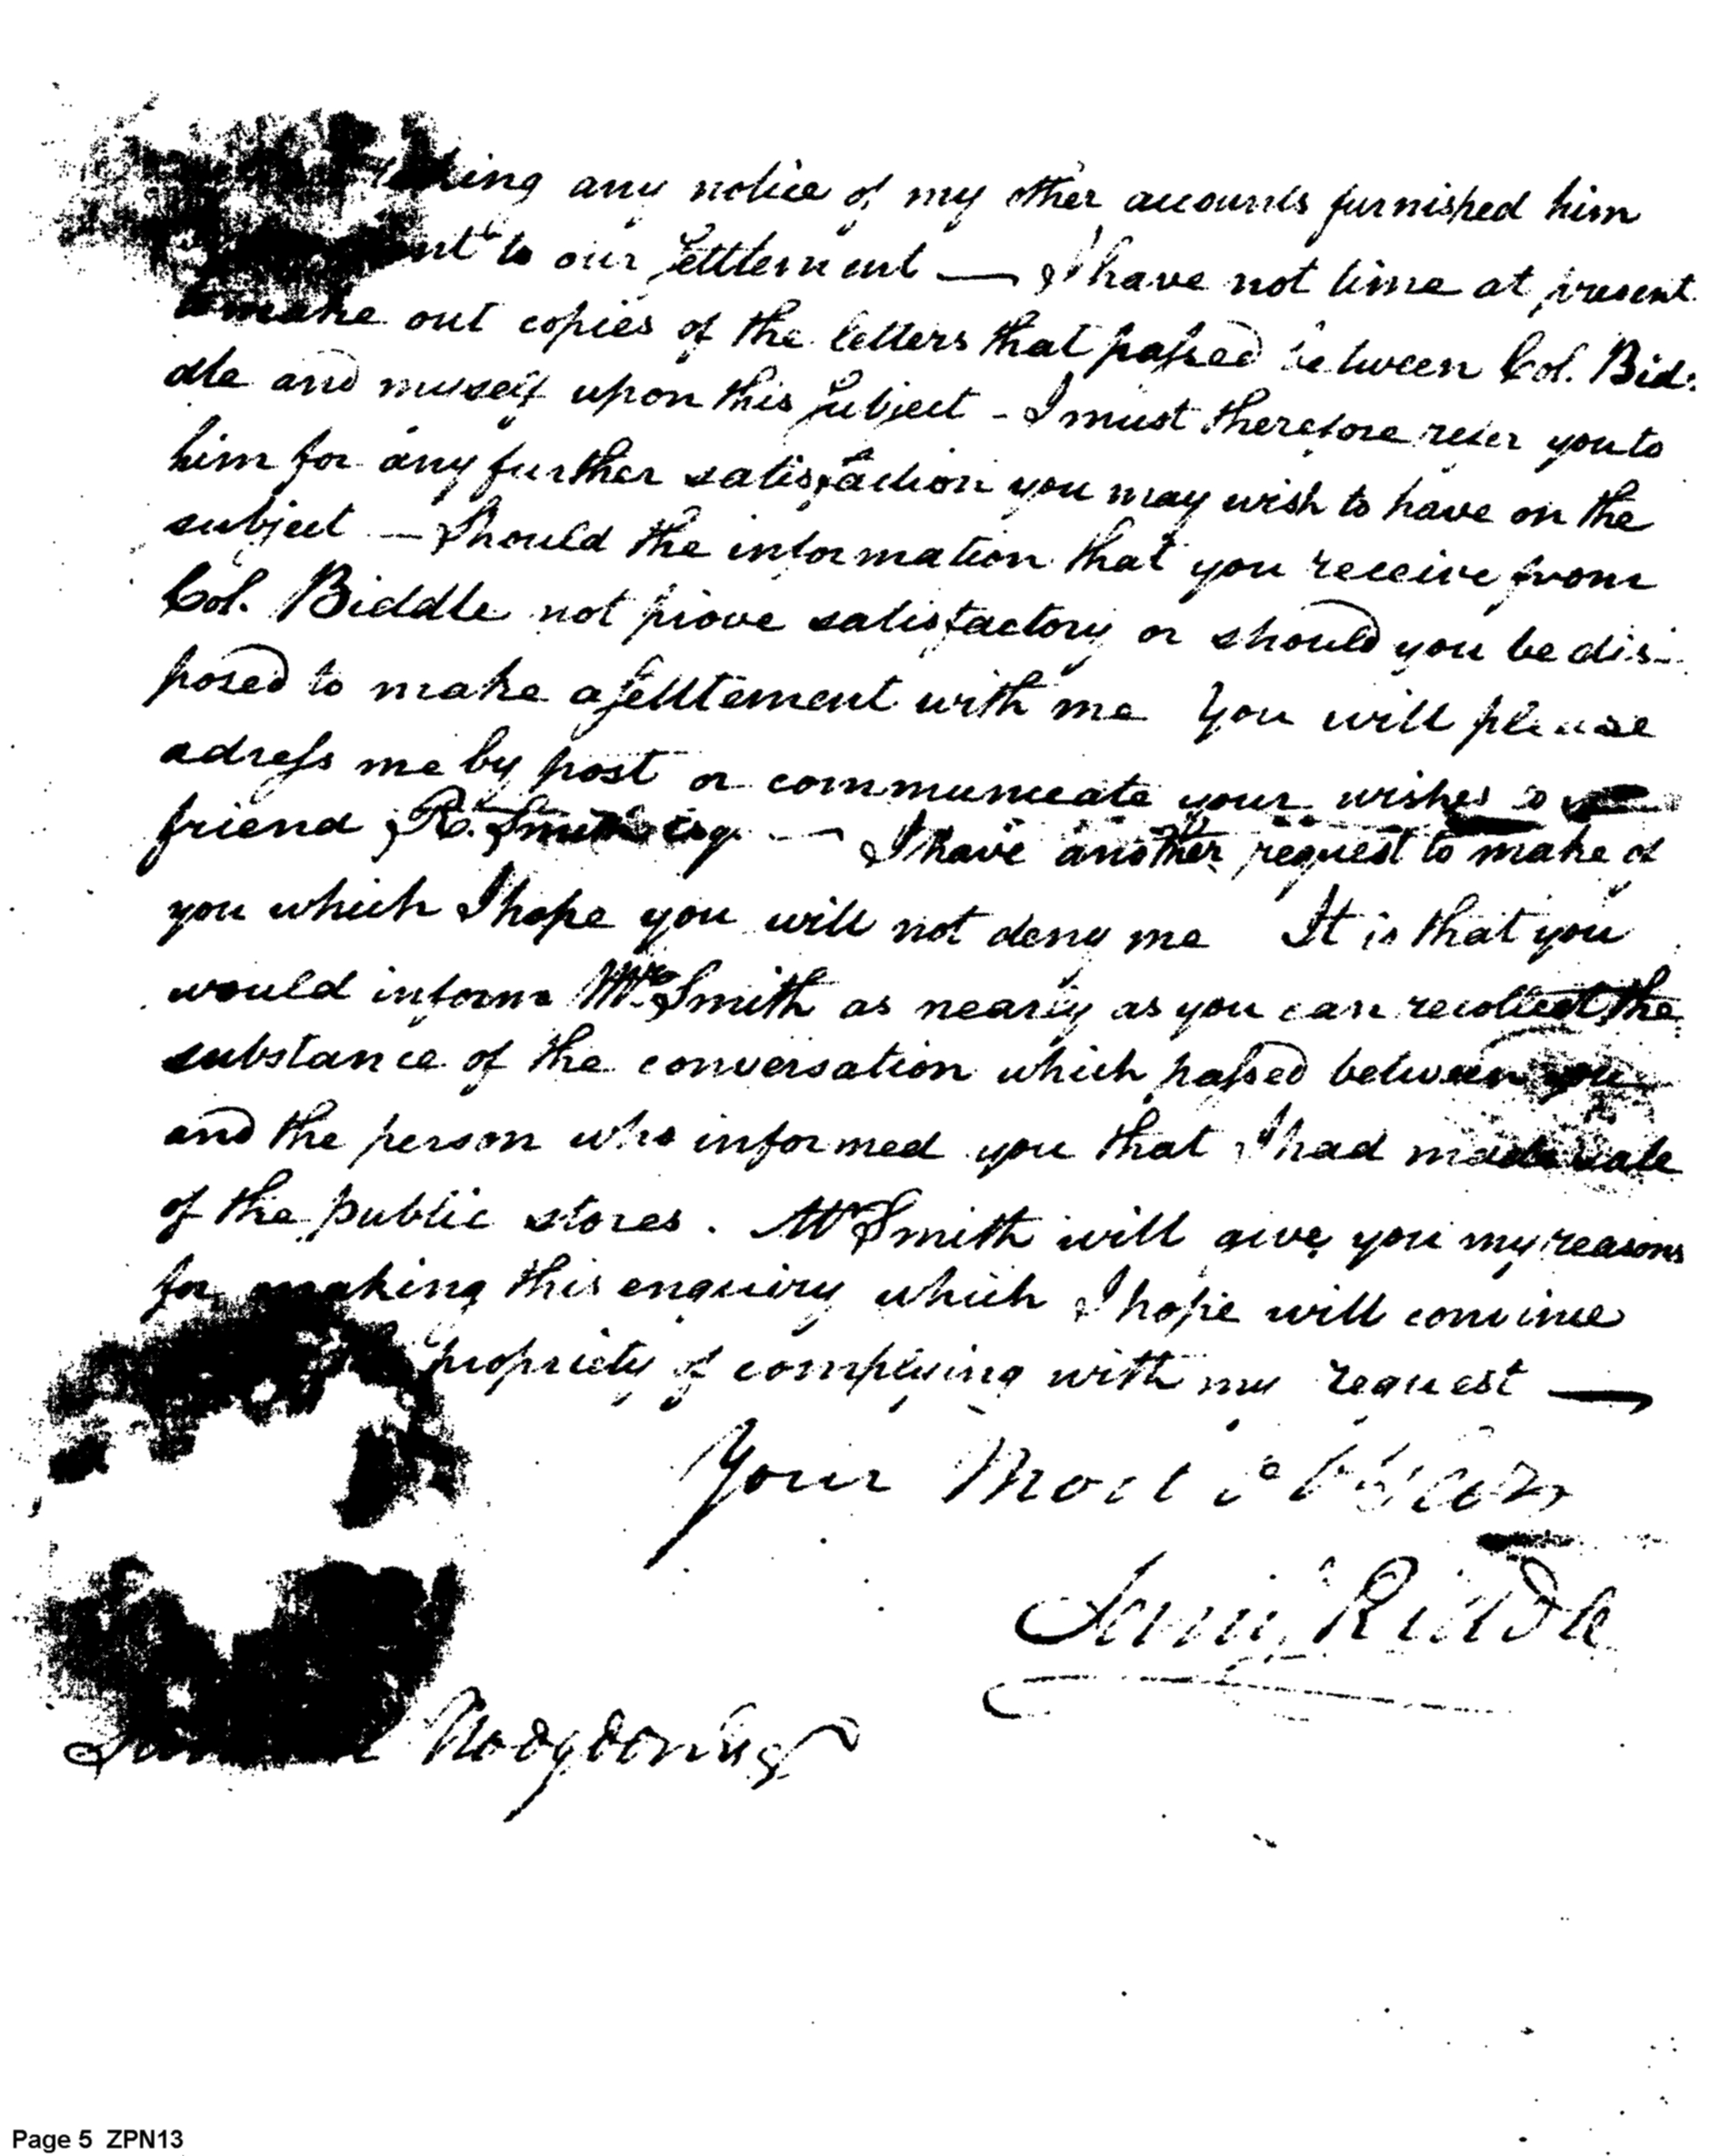 any notice of my other accounts furnished him
to our Settlement — I have not time at present
make out copies of the letters that passed between Col. Bid-
dle and myself upon this Subject - I must therefore refer you to
him for any further satisfaction you may wish to have on the
subject — Should the information that you receive from
Col. Biddle not prove satisfactory or should you be dis-
posed to make a Settlement with me You will please
adress me by post or communicate your wishes to
friend R. Smith esqr. — I have another request to make of
you which I hope you will not deny me It is that you
would inform Mr. Smith as nearly as you can recollect the
substance of the conversation which passed between you
and the person who informed you that I had made sale
of the public stores. Mr Smith will give you my reasons
for making this enquiry which I hope will convince
propriety of complying with my request —
Your Most
Hodgdon Esqr
Page 5 ZPN13